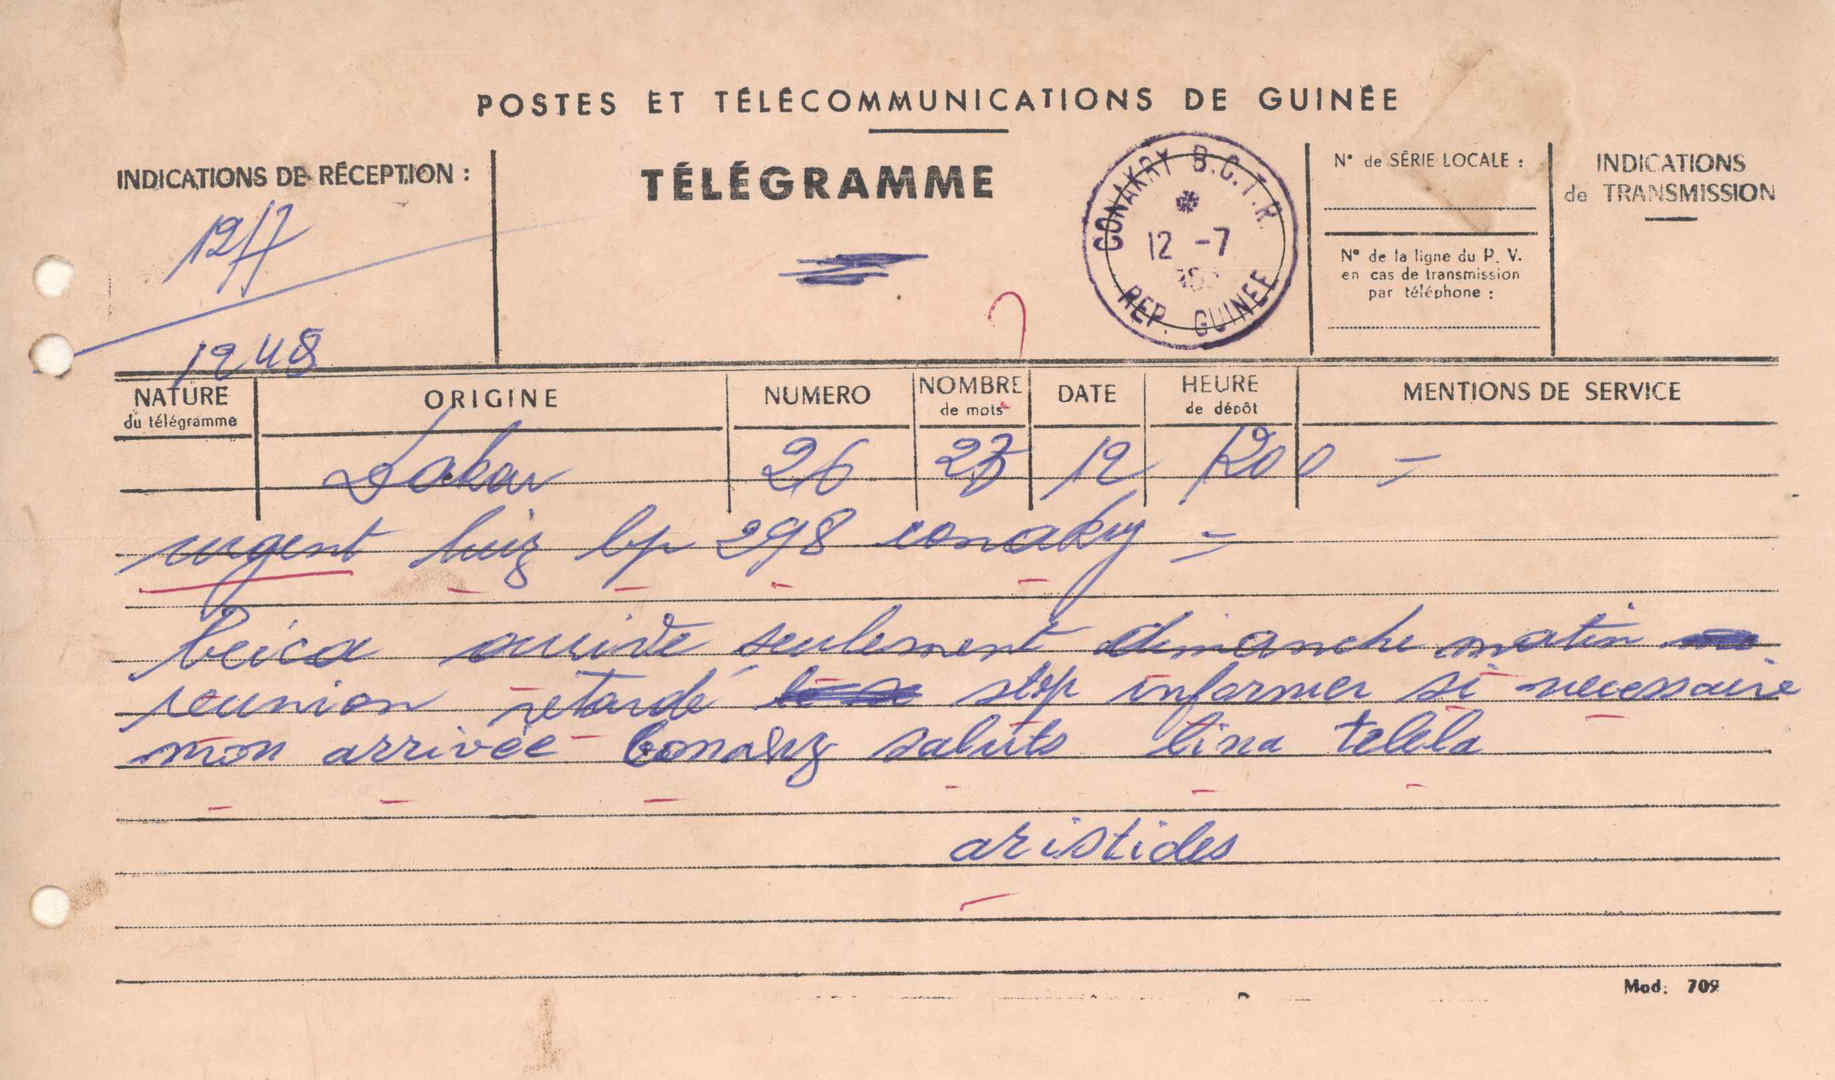 POSTES ET TÉLÉCOMMUNICATIONS DE GUINÉE
INDICATIONS DE RÉCEPTION :
12/7
1248
TÉLÉGRAMME
CONAKRY B.C.T.R.
12 -7
REP. GUINEE
N° de SÉRIE LOCALE :
N° de la ligne du P. V.
en cas de transmission
par téléphone :
INDICATIONS
de TRANSMISSION
NATURE
du télégramme
ORIGINE
NUMERO
NOMBRE
de mots
DATE
HEURE
de dépôt
MENTIONS DE SERVICE
Dakar 26 23 12 1200 -
urgent luiz bp 298 conakry =
beica arrive seulement dimanche matin
reunion retardé stop informer si necessaire
mon arrivée Conakry saluts lina telela
aristides
Mod. 709